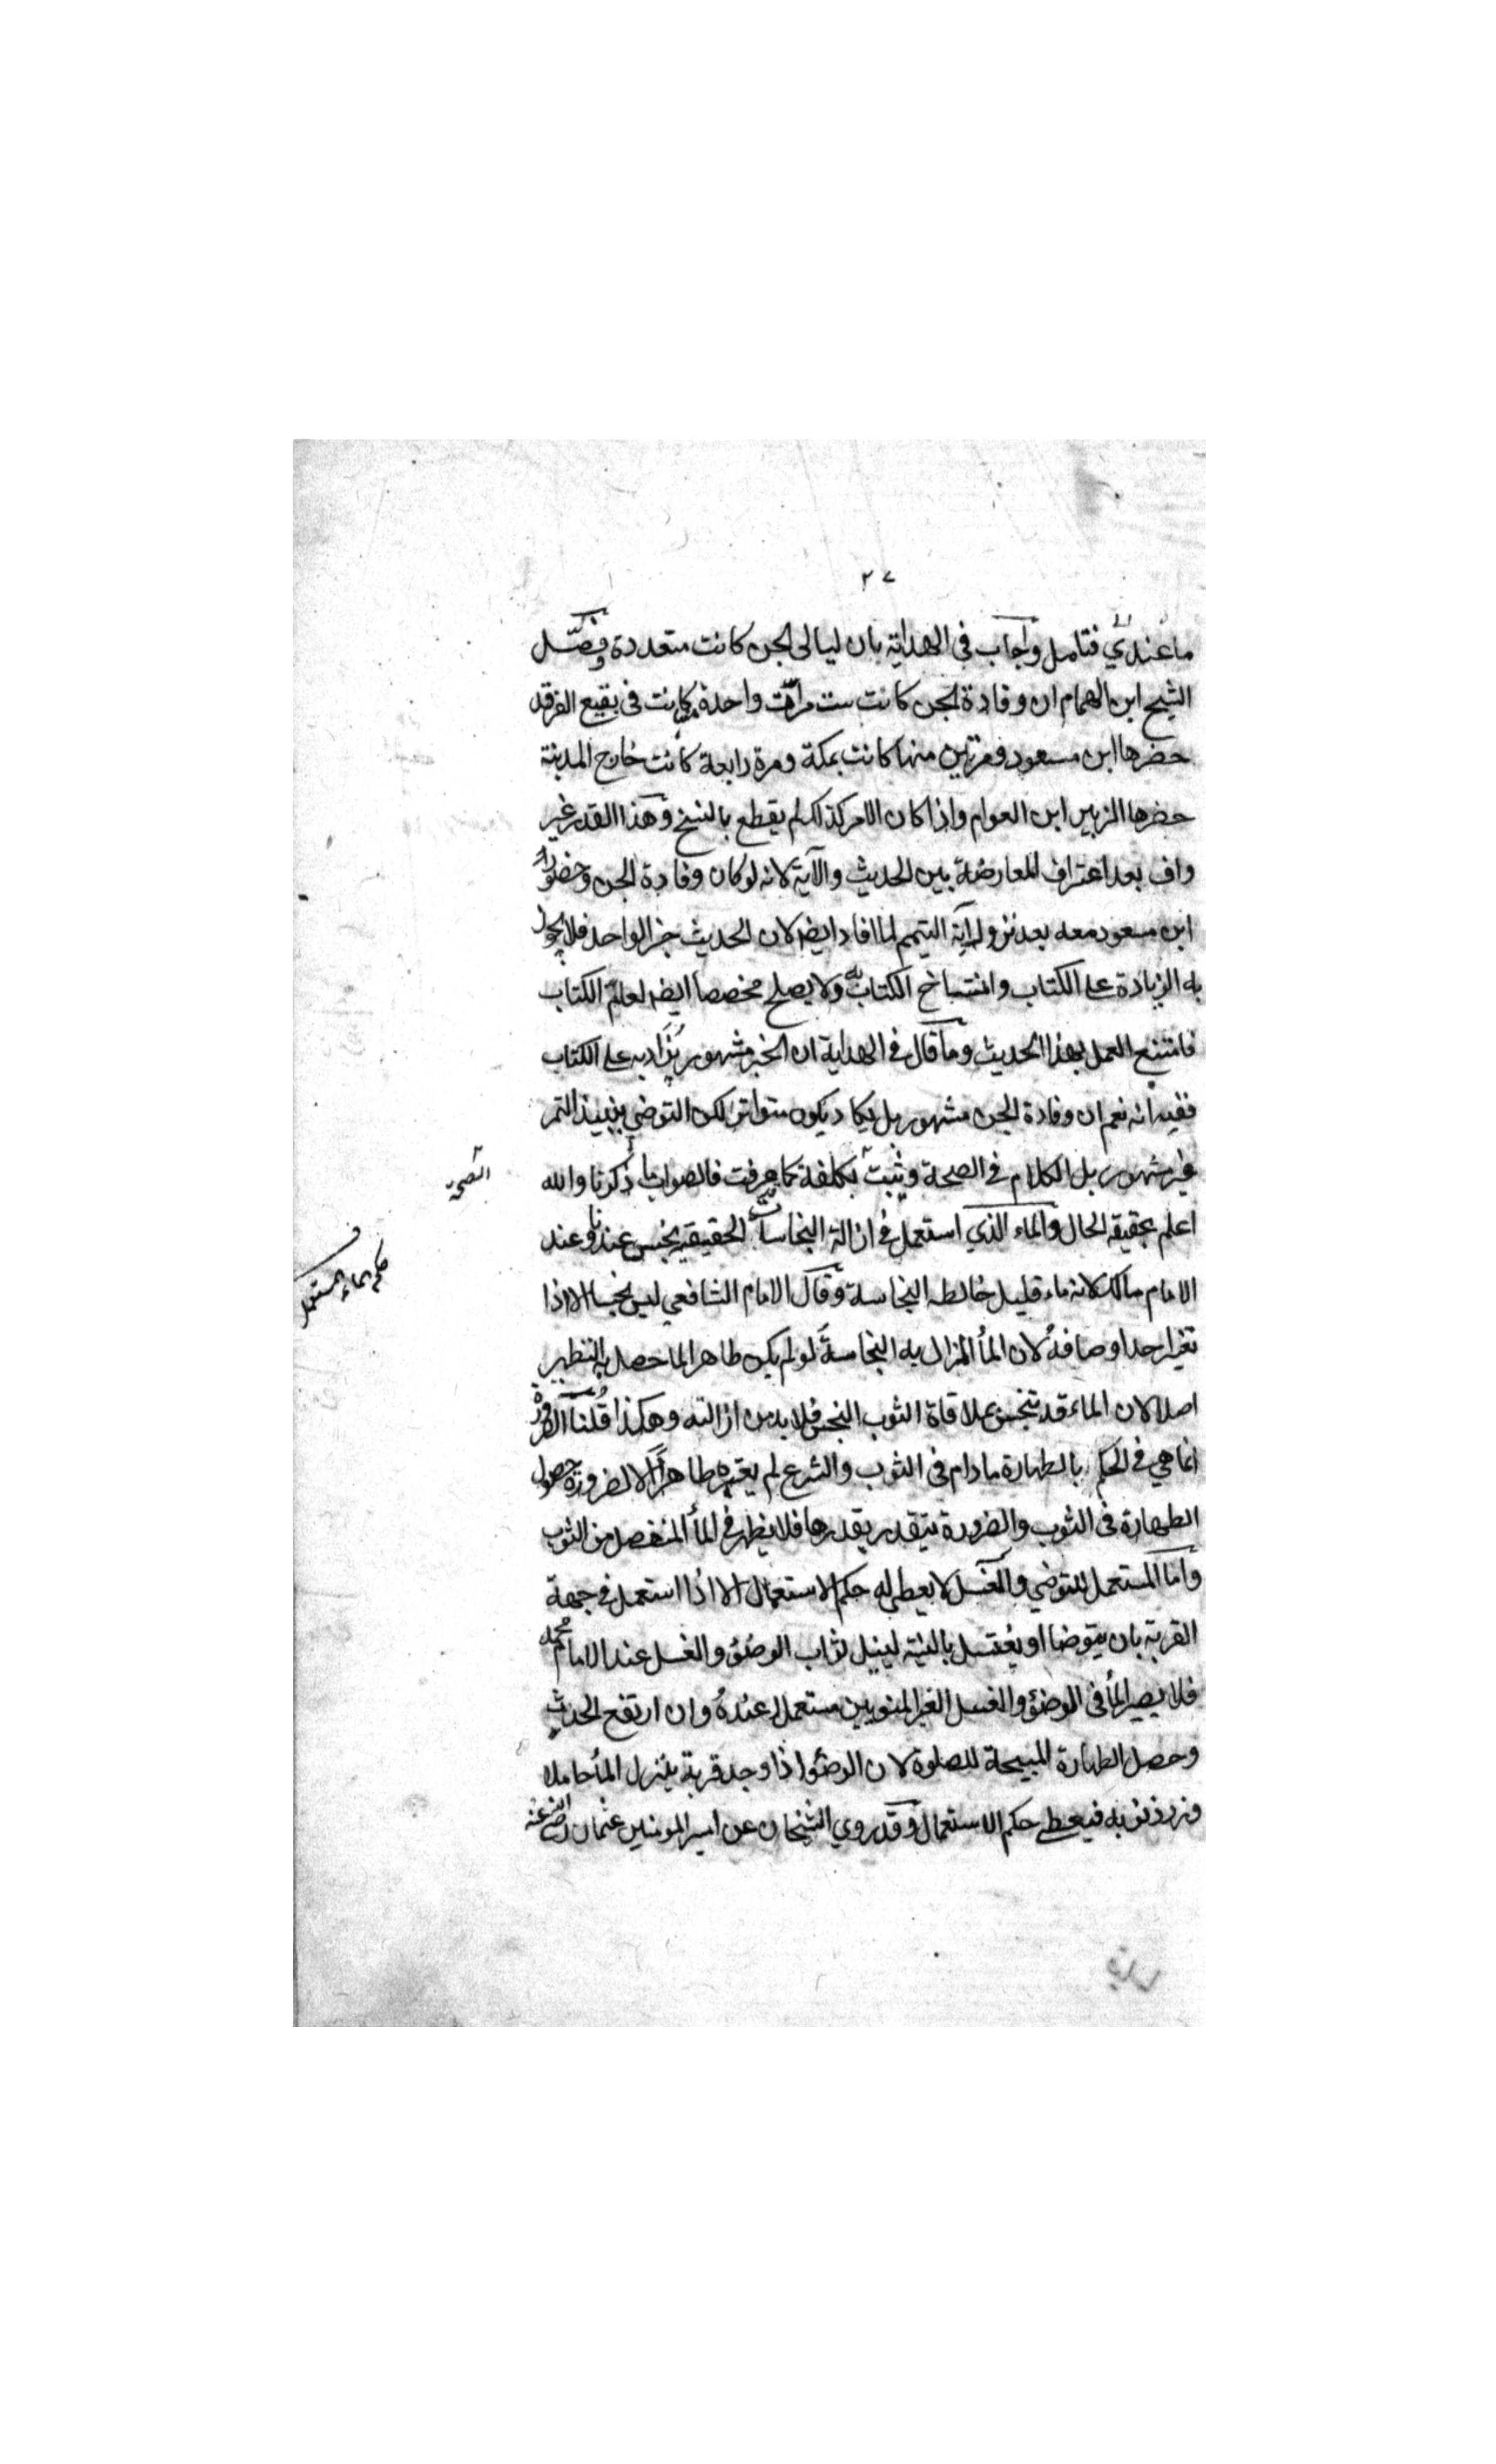 ٢٧
ما عندي فتامل واجاب في الهداية بان ليالي الجن كانت متعددة وفصّل
الشيخ ابن الهمام ان وفادة الجن كانت ست مرات واحدة كانت في بقيع الغرقد
حضرها ابن مسعود ومرتين منها كانت بمكة ومرة رابعة كانت خارج المدينة
حضرها الزبير ابن العوام واذا كان الامر كذلك لم يقطع بالنسخ وهذا القدر غير
واف بعد اعتراف المعارضة بين الحديث والآية لانه لو كان وفادة الجن وحضور
ابن مسعود معه بعد نزول آية التيمم لما افاد ايضا لان الحديث خبر الواحد فلا يجوز
به الزيادة على الكتاب وانتساخ الكتاب به ولا يصلح مخصصا ايضا لعام الكتاب
فامتنع العمل بهذا الحديث وما قال في الهداية ان الخبر مشهور يزاد به على الكتاب
ففيه انه نعم ان وفادة الجن مشهور بل يكاد يكون متواترا لكن التوضي بنبيذ التمر
غير مشهور بل الكلام في الصحة ويثبت بكلفة كما عرفت فالصواب ما ذكرنا والله
اعلم بحقيقة الحال والماء الذي استعمل في ازالة النجاسات الحقيقية نجس عندنا وعند
الامام مالك لانه ماء قليل خالطه النجاسة وقال الامام الشافعي ليس نجسا الا اذا
تغير احد اوصافه لان المأ المزال به النجاسة لو لم يكن طاهرا لما حصل به التطهير
اصلا لان الماء قد تنجس بملاقاة الثوب النجس فلا بد من ازالته وهكذا قلنا الضرورة
انما هي في الحكم بالطهارة ما دام في الثوب والشرع لم يعتبره طاهرا الا لضرورة حصول
الطهارة في الثوب والضرورة يتقدر بقدرها فلا يظهر في المأ المنفصل من الثوب
واما المستعمل للتوضي والغسل لا يعطى له حكم الاستعمال الا اذا استعمل في جهة
القربة بان يتوضا او يغتسل بالنية لينيل ثواب الوضؤ والغسل عند الامام محمد
فلا يصير المأ في الوضؤ والغسل الغير المنويين مستعملا عنده وان ارتفع الحدث
وحصل الطهارة المبيحة للصلوة لان الوضؤ اذا وجد قربة ينزل المأ حاملا
وزر ذنوبه فيعطى حكم الاستعمال وقد روي الشيخان عن امير المومنين عثمان رضي الله عنه
الصحة
حكم الماء المستعمل